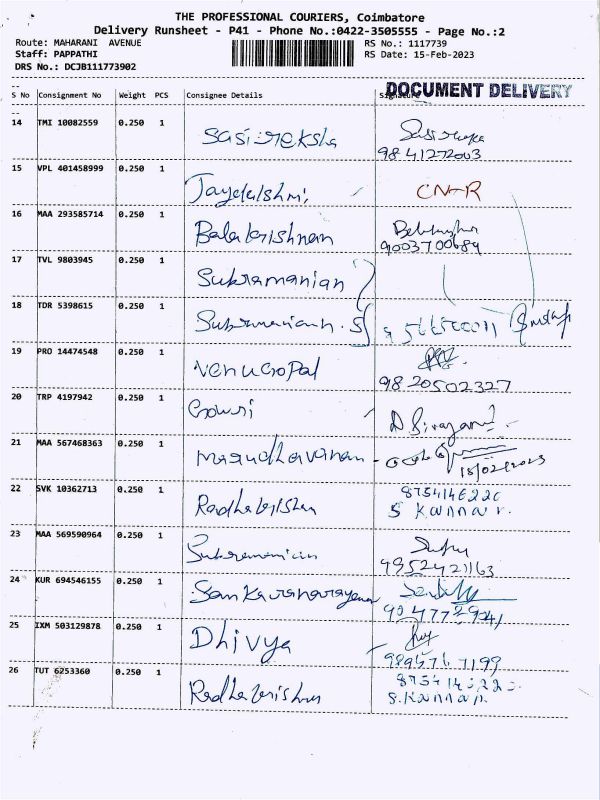 THE PROFESSIONAL COURIERS, Coimbatore
Delivery Runsheet - P41 - Phone No.:0422-3505555 - Page No.:2
Route: MAHARANI AVENUE
RS No.: 1117739
Staff: PAPPATHI
RS Date: 15-Feb-2023
DRS No.: DCJB111773902
DOCUMENT DELIVERY
S No Consignment No Weight PCS Consignee Details Signature
14 TMI 10082559 0.250 1 Sasireksha
9841272003
15 VPL 401458999 0.250 1 CNR
16 MAA 293585714 0.250 1 Balakrishnan
9003700689
17 TVL 9803945 0.250 1 Subramanian
18 TDR 5398615 0.250 1 Subramanian. S
19 PRO 14474548 0.250 1 Venugopal
9820502327
20 TRP 4197942 0.250 1 Gowri
21 MAA 567468363 0.250 1 Marudhavanan
15/02/2023
22 SVK 10362713 0.250 1 Radhakrishnan
S Kannan.
23 MAA 569590964 0.250 1 Subramanian
9952421163
24 KUR 694546155 0.250 1 Sankaranarayanan
25 IXM 503129878 0.250 1 Dhivya
26 TUT 6253360 0.250 1 Radhakrishnan
S.Kannan.